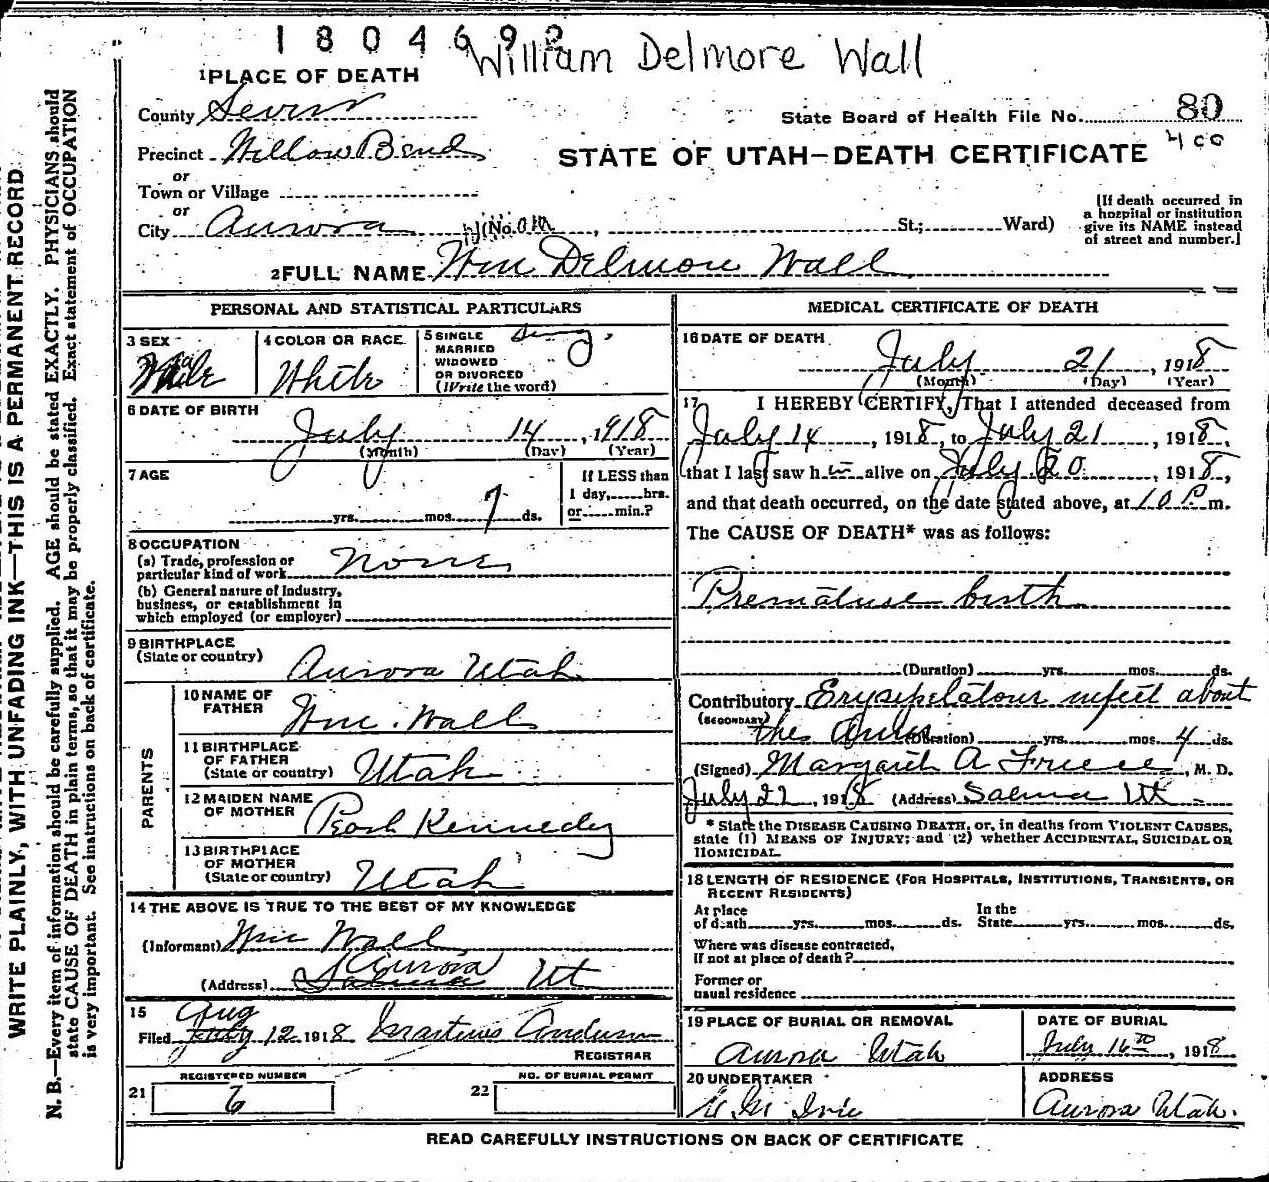 1804692
William Delmore Wall
1 PLACE OF DEATH
County Sevier
State Board of Health File No. 80
400
Precinct Willow Bend
STATE OF UTAH—DEATH CERTIFICATE
or
Town or Village
or
City Aurora (No. St.; Ward)
[If death occurred in a hospital or institution give its NAME instead of street and number.]
2 FULL NAME Wm Delmore Wall
PERSONAL AND STATISTICAL PARTICULARS
3 SEX Male
4 COLOR OR RACE White
5 SINGLE MARRIED WIDOWED OR DIVORCED (Write the word) Sing.
6 DATE OF BIRTH
July 14, 1918
(Month) (Day) (Year)
7 AGE
yrs. mos. 7 ds.
If LESS than 1 day, hrs. or min.?
8 OCCUPATION
(a) Trade, profession or particular kind of work None
(b) General nature of industry, business, or establishment in which employed (or employer)
9 BIRTHPLACE
(State or country) Aurora Utah
PARENTS
10 NAME OF FATHER Wm. Wall
11 BIRTHPLACE OF FATHER (State or country) Utah
12 MAIDEN NAME OF MOTHER Kennedy
13 BIRTHPLACE OF MOTHER (State or country) Utah
14 THE ABOVE IS TRUE TO THE BEST OF MY KNOWLEDGE
(Informant) Wm Wall
(Address) Salina Aurora Ut
15
Filed July Aug 12 1918
REGISTRAR
REGISTERED NUMBER
21 6
NO. OF BURIAL PERMIT
22
MEDICAL CERTIFICATE OF DEATH
16 DATE OF DEATH
July 21, 1918
(Month) (Day) (Year)
17 I HEREBY CERTIFY, That I attended deceased from
July 14, 1918, to July 21, 1918,
that I last saw him alive on July 20, 1918,
and that death occurred, on the date stated above, at 10 P. m.
The CAUSE OF DEATH* was as follows:
Premature birth
(Duration) yrs. mos. ds.
Contributory Erysipelatous infect about
(SECONDARY)
the (Duration) yrs. mos. 4 ds.
(Signed) Margaret A Freece, M. D.
July 22, 1918 (Address) Salina Ut
* State the DISEASE CAUSING DEATH, or, in deaths from VIOLENT CAUSES,
state (1) MEANS OF INJURY; and (2) whether ACCIDENTAL, SUICIDAL OR
HOMICIDAL.
18 LENGTH OF RESIDENCE (FOR HOSPITALS, INSTITUTIONS, TRANSIENTS, OR
RECENT RESIDENTS)
At place of death yrs. mos. ds. In the State yrs. mos. ds.
Where was disease contracted,
If not at place of death?
Former or
usual residence
19 PLACE OF BURIAL OR REMOVAL
Aurora Utah
DATE OF BURIAL
July 16th, 1918
20 UNDERTAKER
Ivie
ADDRESS
Aurora Utah.
READ CAREFULLY INSTRUCTIONS ON BACK OF CERTIFICATE
WRITE PLAINLY, WITH UNFADING INK—THIS IS A PERMANENT RECORD.
N. B.—Every item of information should be carefully supplied. AGE should be stated EXACTLY. PHYSICIANS should
state CAUSE OF DEATH in plain terms, so that it may be properly classified. Exact statement of OCCUPATION
is very important. See instructions on back of certificate.